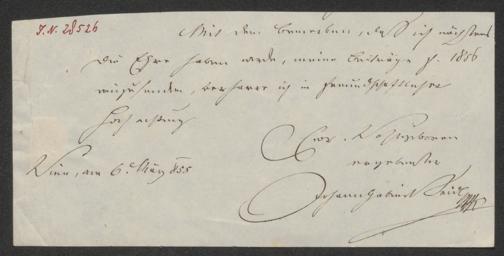 I.N. 28526
Mit dem Bemerken, daß ich nächstens
die Ehre haben werde, meine Beiträge f. 1856
einzusenden, verharre ich in freundschaftlicher
Hochachtung
Euer Wohlgeboren
ergebenster
Wien, am 6. März 855
Johann Gabriel Seidl